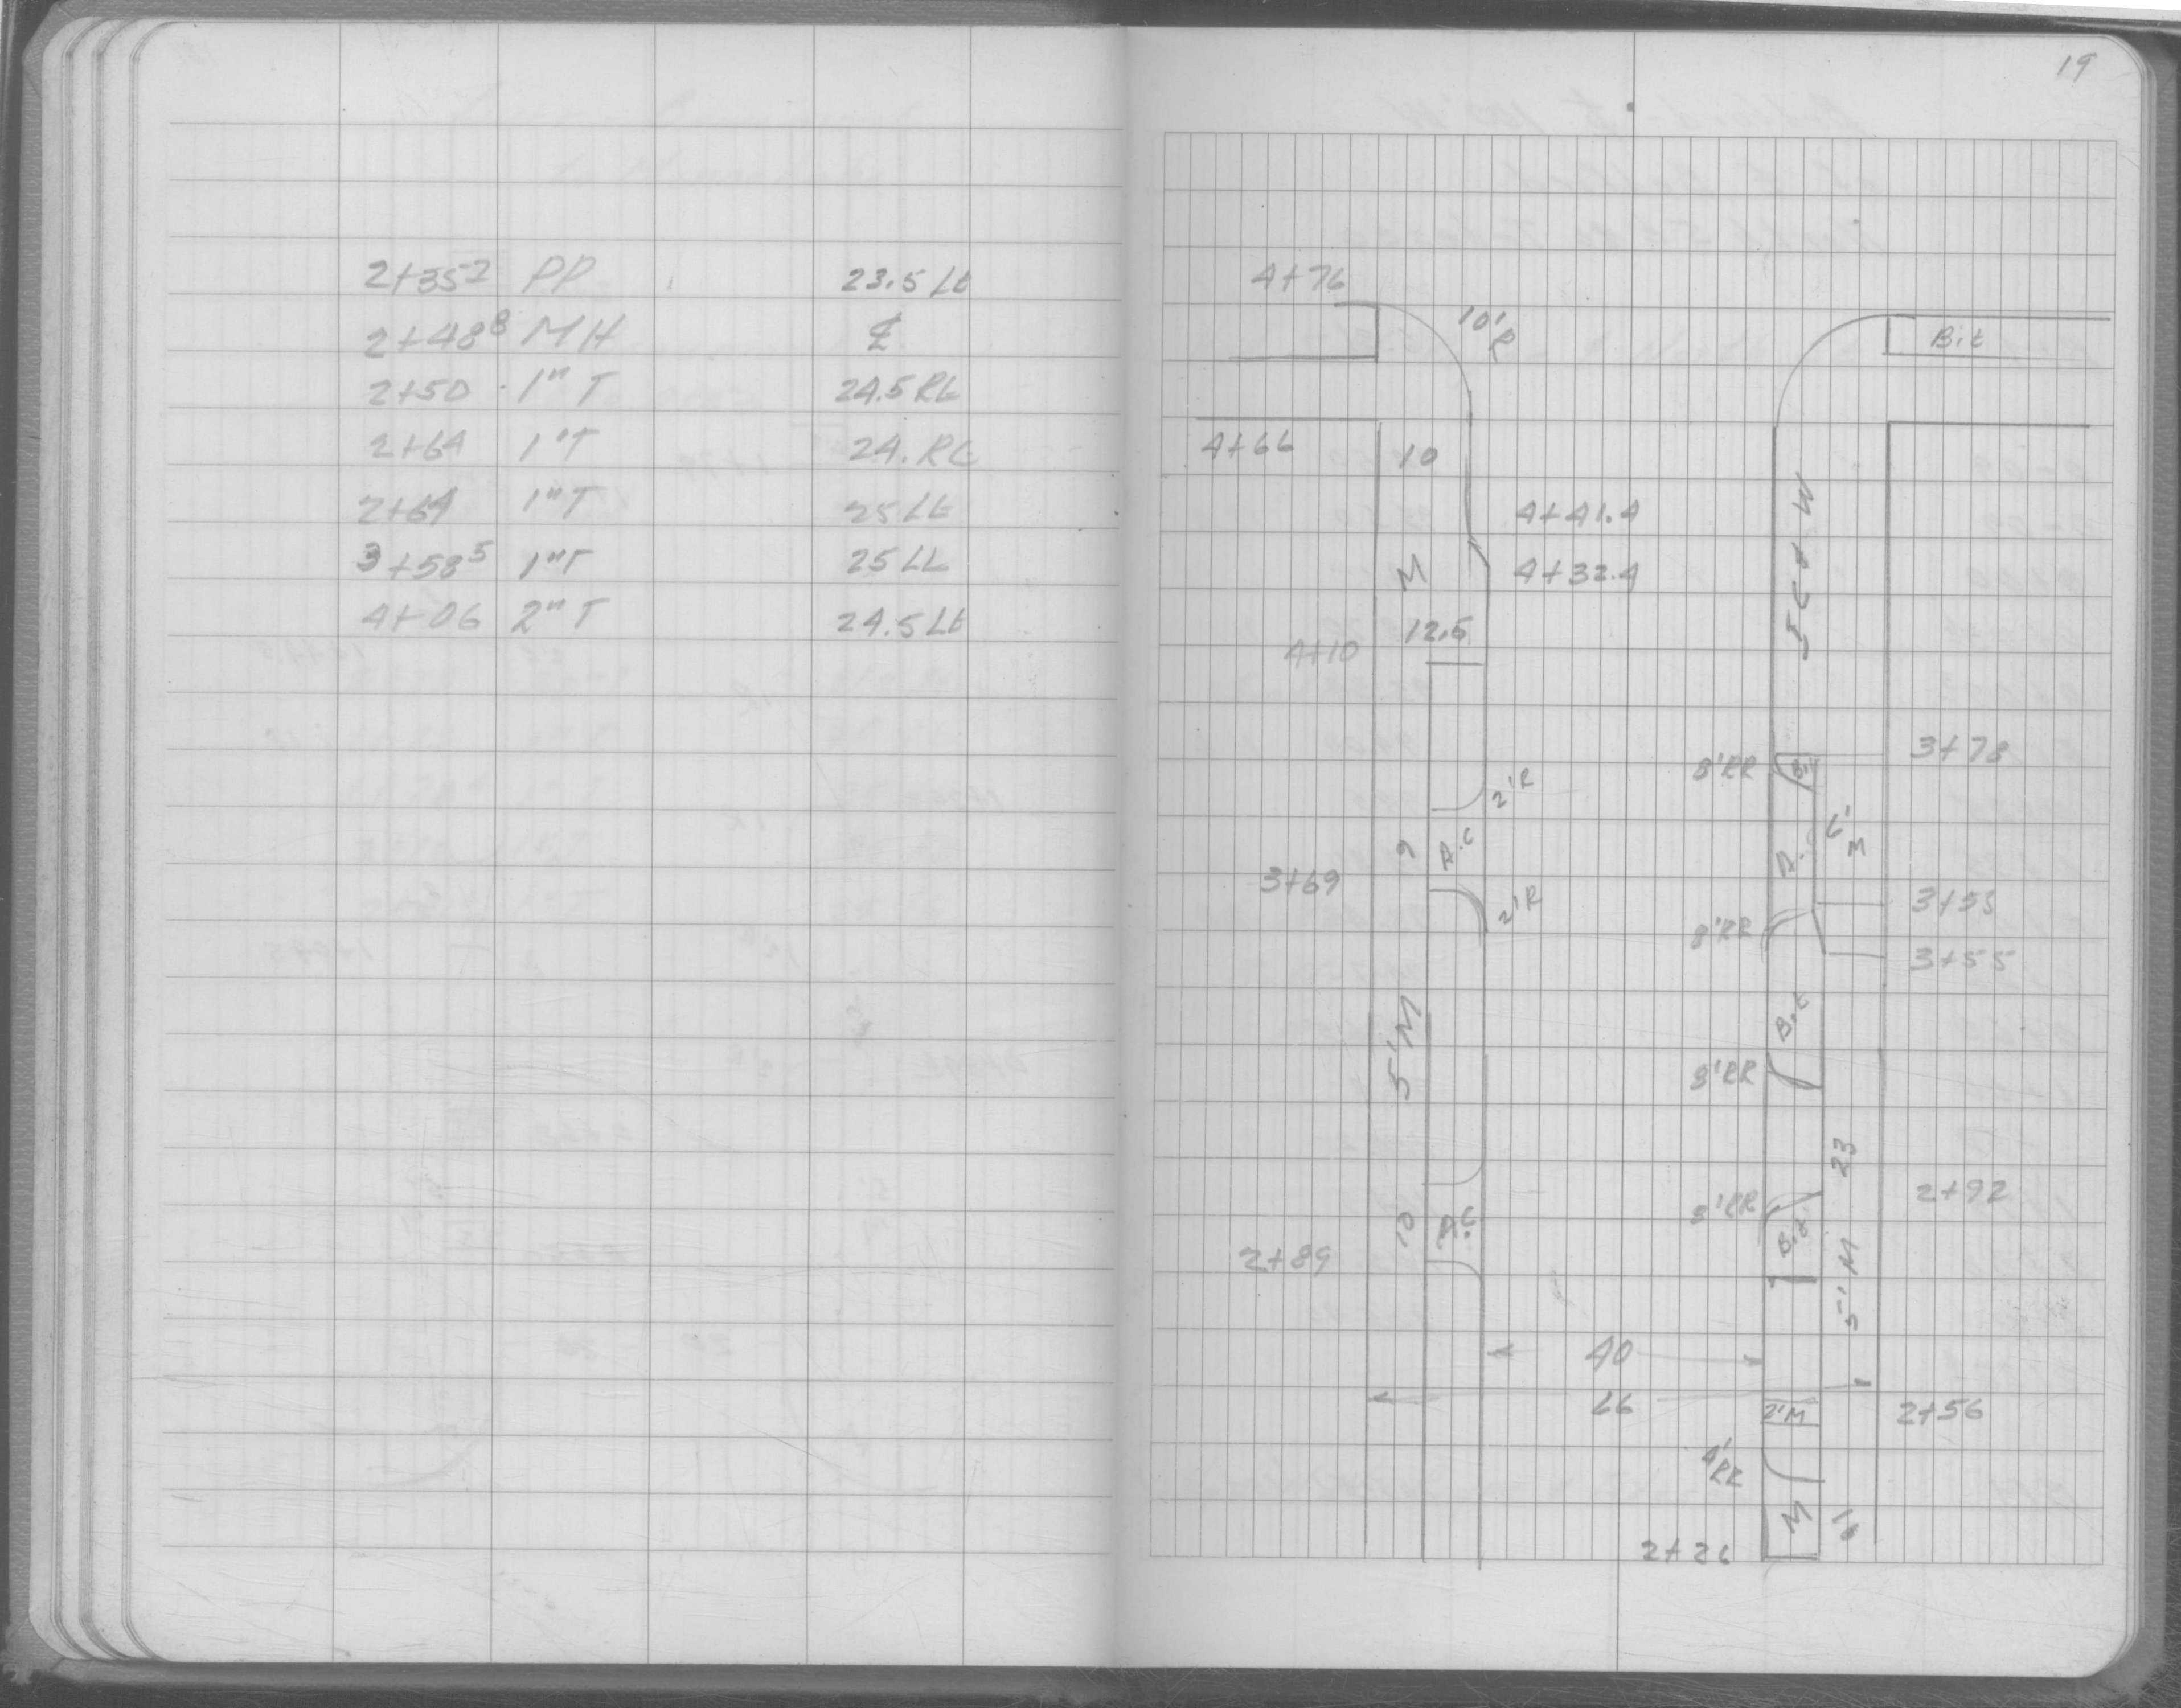 2+35⁷ PP 23.5 Lt
2+48⁸ MH ℄
2+50 1" T 24.5 Rt
2+64 1" T 24. Rt
2+64 1" T 25 Lt
3+58⁵ 1" T 25 Lt
4+06 2" T 24.5 Lt
19
4+76
10'R
Bit
4+66
10
4+41.4
M
4+32.4
12.5
4+10
3+78
8'RR
2'R
6' M
9
3+69
2'R
8'RR
3+55
Bit
5'M
8'RR
23
8'RR
2+92
10
2+89
Bit
5'M
40
66
2'M
2+56
4'RR
M
2+26